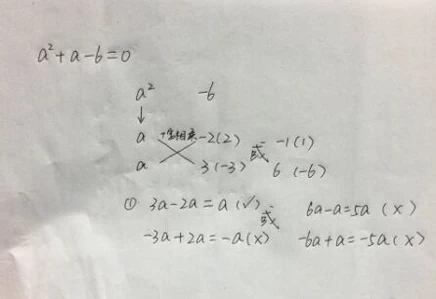 a²+a-6=0
a² -6
↓
a 十字相乘 -2(2) 或 -1(1)
a 3(-3) 6(-6)
① 3a-2a=a(✓) 或 6a-a=5a(×)
-3a+2a=-a(×) -6a+a=-5a(×)